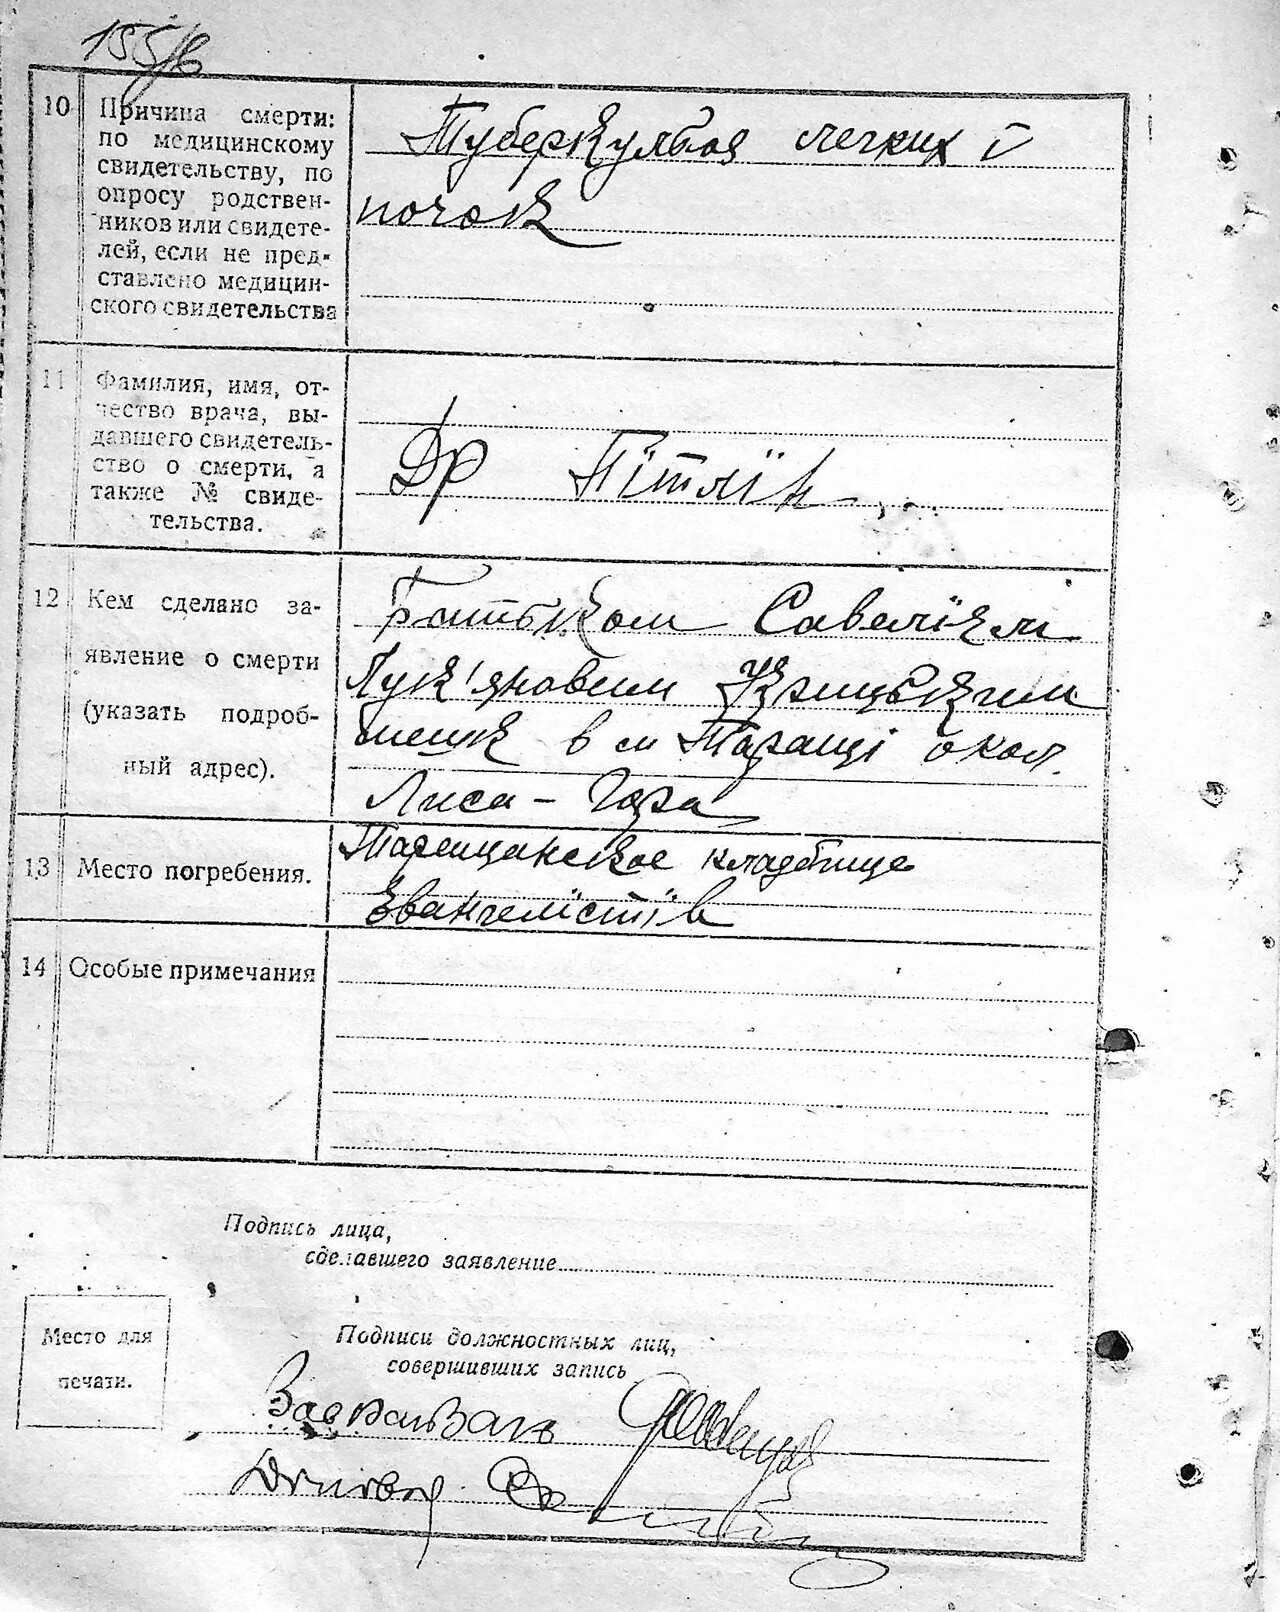 155/6
10 Причина смерти:
по медицинскому
свидетельству, по
опросу родствен-
ников или свидете-
лей, если не пред-
ставлено медицин-
ского свидетельства
Туберкульоз легких і
почок
11 Фамилия, имя, от-
чество врача, вы-
давшего свидетель-
ство о смерти, а
также № свиде-
тельства.
Др Пітлін
12 Кем сделано за-
явление о смерти
(указать подроб-
ный адрес).
Батьком Савелієм
Лук'яновим
в м Таращі окол.
Лиса - Гора
13 Место погребения.
Таращанское кладбище
Євангелістів
14 Особые примечания
Подпись лица,
сделавшего заявление
Место для
печати.
Подписи должностных лиц,
совершивших запись